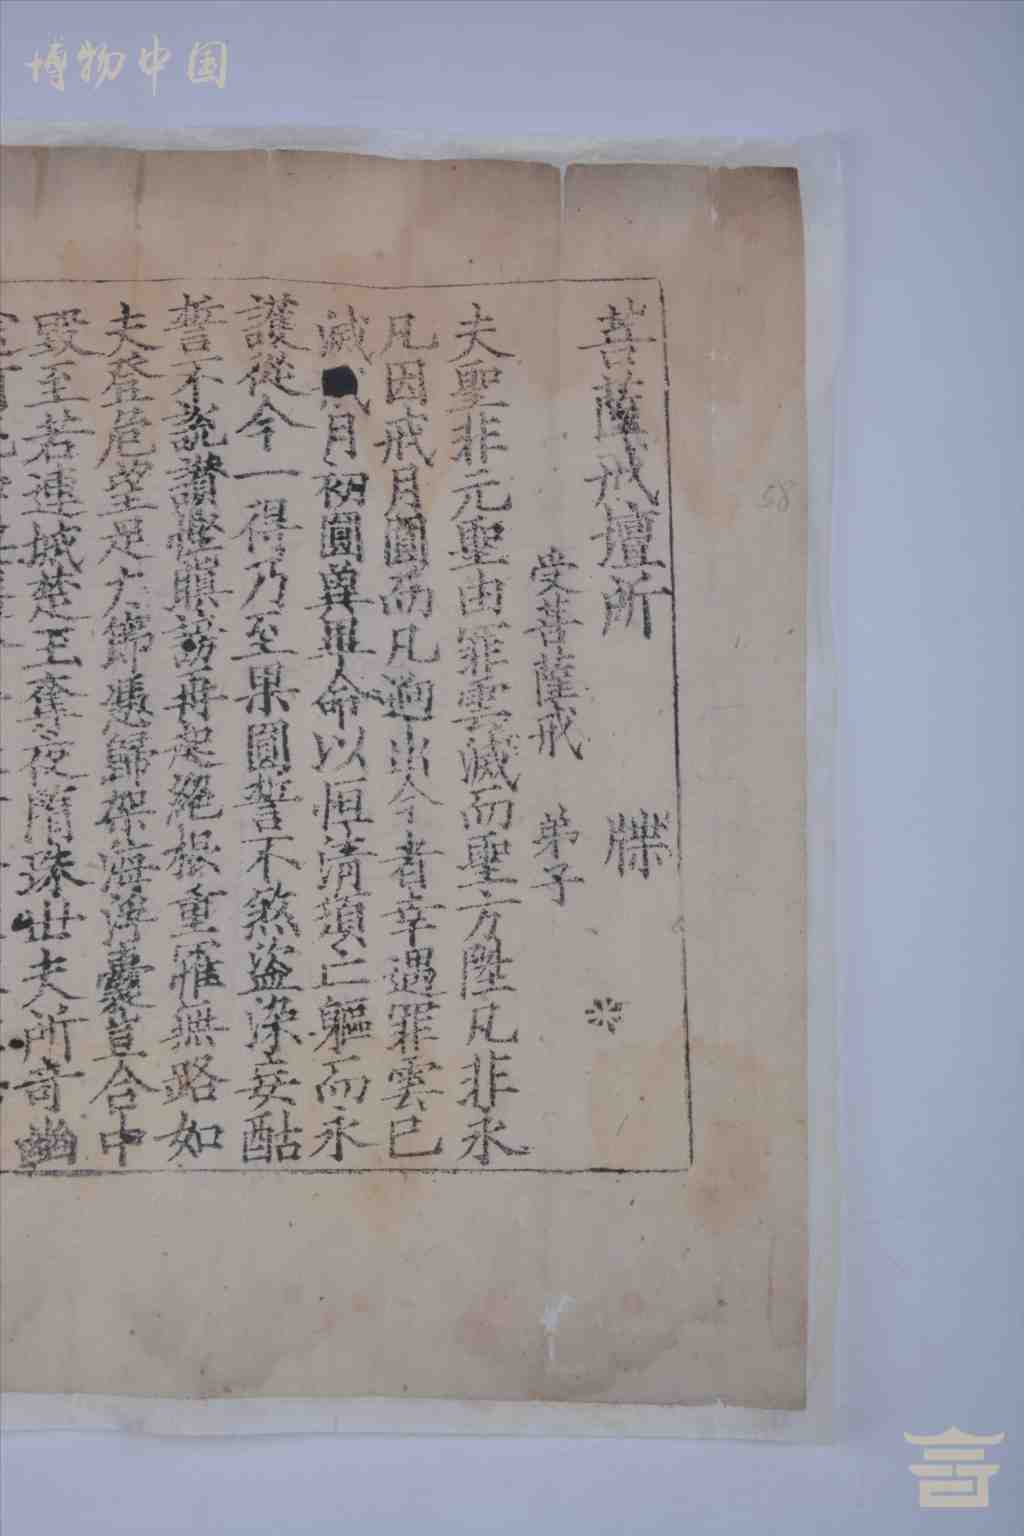 博物中国
菩薩戒壇所 牒
受菩薩戒 弟子
夫聖非元聖由罪雲滅而聖方陞凡非永
凡因戒月圓而凡逈出今者幸遇罪雲已
滅戒月初圓異畢命以恒清須亡軀而永
護從今一得乃至果圓誓不煞盜染妄酤
誓不説讃慳瞋謗再起絕根重罪無路如
夫登危望足方歸憑歸架海浮囊豈合中
毀至若連城楚王奪夜隋珠世夫所奇
58